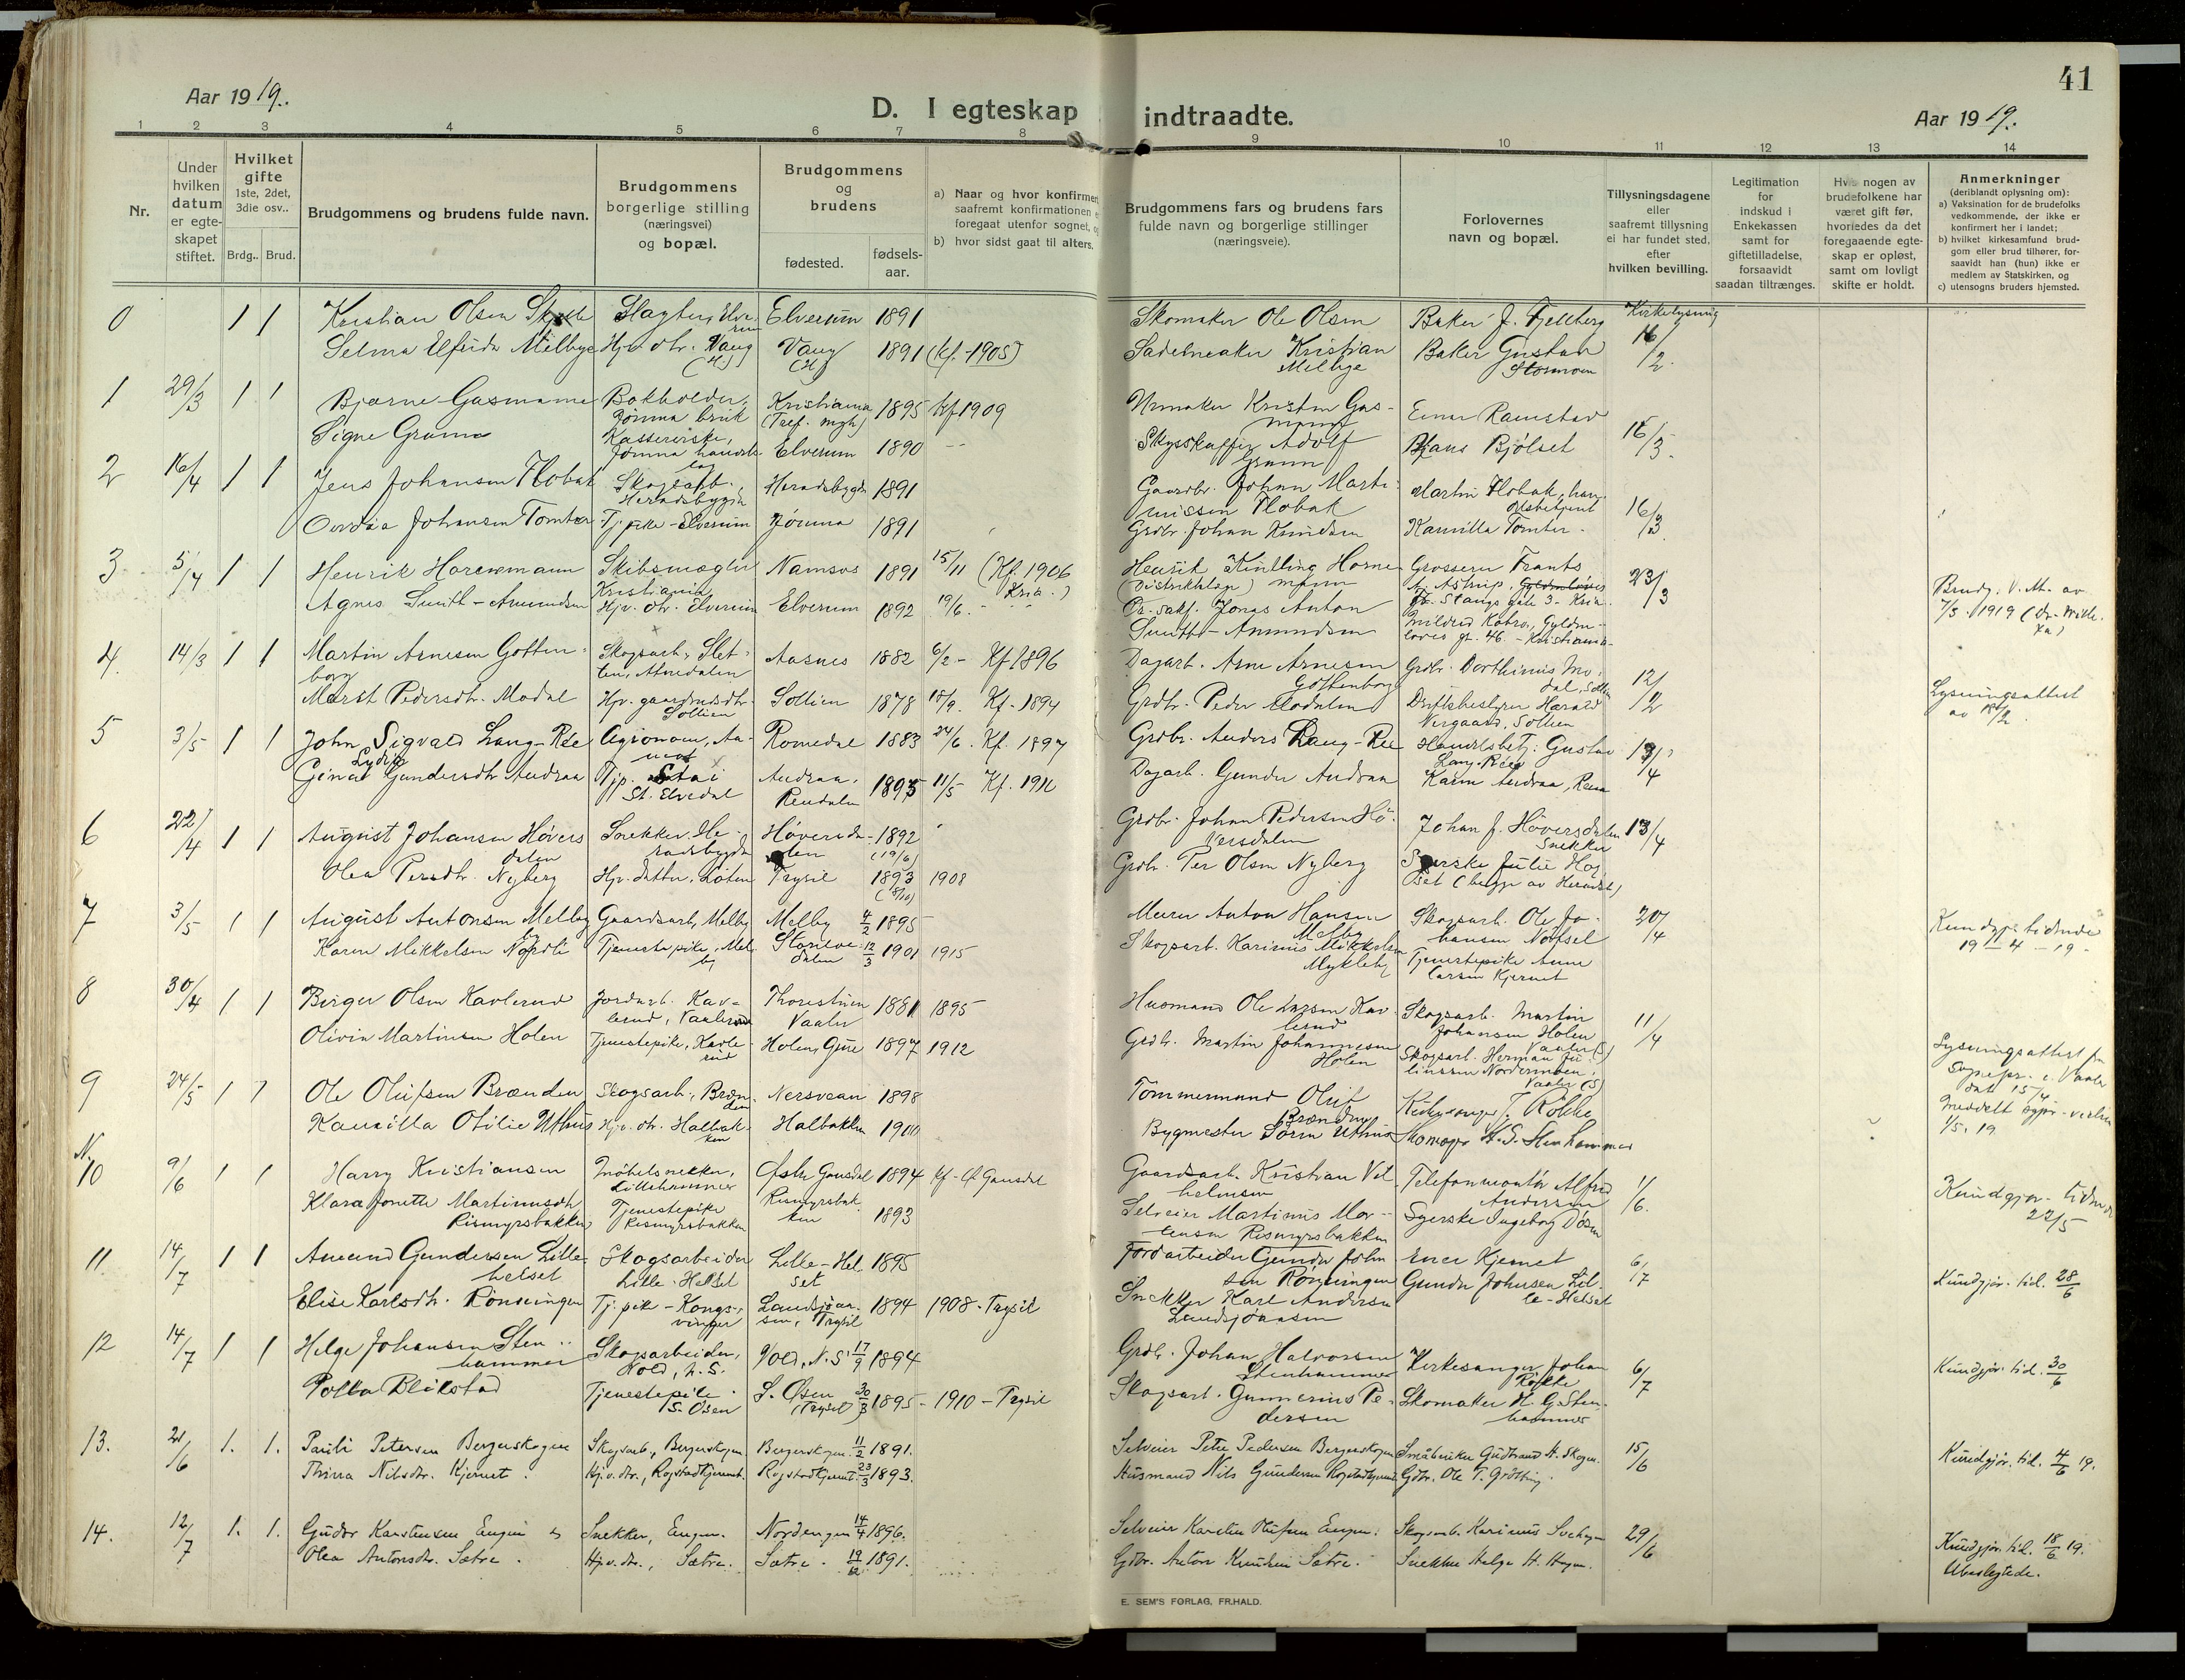 41
Aar 1919.
D. I egteskap indtraadte.
Aar 1919.
1 2 3 4 5 6 7 8 9 10 11 12 13 14
Nr.
Under hvilken datum er egteskapet stiftet.
Hvilket gifte 1ste, 2det, 3die osv..
Brdg.. Brud.
Brudgommens og brudens fulde navn.
Brudgommens borgerlige stilling (næringsvei) og bopæl.
Brudgommens og brudens
fødested.
fødselsaar.
a) Naar og hvor konfirmert
saafremt konfirmationen
foregaat utenfor sognet,
b) hvor sidst gaat til alters.
Brudgommens fars og brudens fars
fulde navn og borgerlige stillinger
(næringsveie).
Forlovernes
navn og bopæl.
Tillysningsdagene
eller
saafremt tillysning
ei har fundet sted,
efter
hvilken bevilling.
Legitimation
for
indskud i
Enkekassen
samt for
giftetilladelse,
forsaavidt
saadan tiltrænges.
Hvis nogen av
brudefolkene har
været gift før,
hvorledes da det
foregaaende egteskap er opløst,
samt om lovligt
skifte er holdt.
Anmerkninger
(deriblandt oplysning om):
a) Vaksination for de brudefolks
vedkommende, der ikke er
konfirmert her i landet;
b) hvilket kirkesamfund brudgom eller brud tilhører, forsaavidt han (hun) ikke er
medlem av Statskirken, og
c) utensogns bruders hjemsted.
0 1 1 Kristian Olsen Slagter, Elverum Elverum 1891 Skomaker Ole Olsen Baker J. Fjeldberg Kirkelysning 16/2
Selma Elfrida Milbye Hjv. dtr. Vang (H) Vang (H) 1891 (kf. 1905) Sadelmaker Kristian Milbye Baker Gustav Stormoen
1 29/3 1 1 Bjarne Gasmann Bokholder, Jömna bruk Kristiania 1895 kf 1909 Urmaker Kristen Gasmann Einar Ramstad 16/3
Signe Grama Kassererske, Jømna handelslag Elverum 1890 Adolf Hans Bjölset
2 16/4 1 1 Jens Johansen Flobak Skogsarb., Heradsbygda Heradsbygda 1891 Gaardbr. Johan Martinussen Flobak Martin Flobak, handelsbetjent 16/3
Johansen Tomter Tj.pike - Elverum Jömna 1891 Grdbr. Johan Knudsen Kamilla Tomter
3 5/4 1 1 Henrik Hornemann Skibsmægler Kristiania Namsos 1891 15/11 (Kf. 1906 Kria.) Henrik Hornemann (Distriktslæge) Grosserer Frants Astrup, Fr. Stangs gate 3 - Kria. 23/3 Brudg. v. Att. av 7/3 1919
Agnes Smith-Amundsen Hjv. dtr. Elverum Elverum 1892 19/6 Or. sakf. Jonas Anton Smith-Amundsen Mildred Gyldenløves gt. 46. - Kristiania
4. 14/3 1 1 Martin Arnesen Gottenborg Skogsarb., Sletten, Atnedalen Aasnes 1882 6/2 - Kf 1896 Dagarb. Arne Arnesen Gottenborg Grdbr. Dorthinius Modal, Sollien 12/12 Lysningsattest
Marit Pedersdtr. Modal Hjv. gaardmdsdtr. Sollien Sollien 1878 18/9. Kf. 1894 Grdbr. Peder Modalen Driftsbestyrer Harald Nergaard, Sollien
5 3/5 1 1 John Sigvald Lang-Ree Agronom, Aamot Romedal 1883 24/6. Kf. 1897 Grdbr. Anders Lang-Ree Handelsbetj. Gustav Lang-Ree 13/4
Gina Lydia Gundersdtr Andraa Tjp. Stai St. Elvedal Andraa, Rendalen 1895 11/5 Kf. 1910 Dagarb. Gunder Andraa Karen Andraa, Rena
6 22/4 1 1 August Johansen Höversdalen Snekker. Heradsbygda Höversdalen 1892 (19/6) Grdbr. Johan Pedersen Höversdalen Johan J. Höversdalen Snekker 13/4
Olea Persdtr. Nyberg Hjv. datter, Løten Trysil 1893 (8/10) 1908 Grdbr. Per Olsen Nyberg Syerske Julie (begge av Heradsb.)
7 3/5 1 1 August Antonsen Melby Gaardsarb, Melby Melby 4/2 1895 Murer Anton Hansen Melby Skogsarb. Ole Johansen Notsel 20/4 Kundgjør. tidende 19-4-19
Karen Mikkelsen Nordli Tjenestepike, Melby 12/3 1901 1915 Skogsarb. Karinius Mikkelsen Mykleby Tjenestepike Anne Larsen Kjernet
8 30/4 1 1 Birger Olsen Kavlerud Jordarb. Kavlerud, Vaaler Vaaler 1881 1895 Husmand Ole Larsen Kavlerud Skogsarb. Martin Johansen Holen Vaaler (S) 11/4 Lysningsattest fra Sognepr. i Vaaler dat. 15/4
Olivia Martinsen Holen Tjenestepike, Kavlerud Holen, Gjue 1897 1912 Grdb. Martin Johannesen Holen Skogsarb. Herman Juliussen Nordermoen, Vaaler (S) 1/5. 19.
9 24/5 1 1 Ole Olufsen Brænden Skogsarb., Brænden Nersveen 1898 Tömmermand Oluf Brænden Kirkesanger J. Rökke
Kamilla Otilie Uthus Hjv. dtr. Halbakken Halbakken 1900 Bygmester Søren Uthus Skomager H. G. Stenhammer
N. 10 9/6 1 1 Harry Kristiansen Møbelsnekker, Lillehammer Østre Gausdal 1894 kf - Ø. Gausdal Gaardsarb. Kristian Vilhelmsen Telefonmontör Alfred Andersen 1/6. Kundgjør. tidende 22/5
Klara Jonette Martinusdtr Rismyrsbakken Tjenestepike Rismyrsbakken Rismyrsbakken 1893 Selveier Martinus Mortensen Rismyrsbakken Syerske Ingeborg
11 14/7 1 1 Amund Gundersen Lille-Helset Skogsarbeider Lille-Helset Lille-Helset 1895 Jordarbeider Gunder Johnsen Rönningen Kjernet 6/7 Kundgjør. tid. 28/6
Elise Karlsdtr. Rönningen Tj. pike - Kongsvinger Landsjøaasen, Trysil 1894 1908 - Trysil Snekker Karl Andersen Landsjöaasen Gunder Johnsen Lille-Helset
12 14/7 1 1 Helge Johansen Stenhammer Skogsarbeider, Vold, N. S. Vold, N. S. 17/9 1894 Grdb. Johan Halvorsen Stenhammer Kirkesanger Johan Rökke 6/7 Kundgjør. tid. 30/6
Polla Blikstad Tjenestepike S. Osen S. Osen (Trysil) 30/3 1895 - 1910 - Trysil Skogsarb. Gunnerius Pedersen Skomaker H. G. Stenhammer
13. 21/6 1. 1. Pauli Petersen Bergerskogen Skogsarb., Bergerskogen Bergerskogen 11/2 1891. Selveier Peter Pedersen Bergerskogen Småbruker Gudbrand H. Skogen. 15/6 Kundgjør. tid. 4/6 19.
Thina Nilsdtr. Kjernet. Hjv. dtr., Rogstadkjernet. Rogstadkjernet. 23/3 1893. Husmand Nils Gundersen Rogstadkjernet Gdbr. Ole T. Grötting.
14. 12/7 1. 1. Gudor Karstensen Engen Snekker, Engen. Nordengen 14/4 1896. Selveier Karsten Olufsen Engen. Skogsarb. Karinius 29/6 Kundgjør. tid. 18/6 19.
Olea Antonsdtr. Sætre. Hjv. dtr., Sætre. Sætre. 19/12 1891. Gdbr. Anton Knudsen Sætre. Snekker Helge H. Hagen. Ubeslegtede.
E. SEM'S FORLAG, FR.HALD.